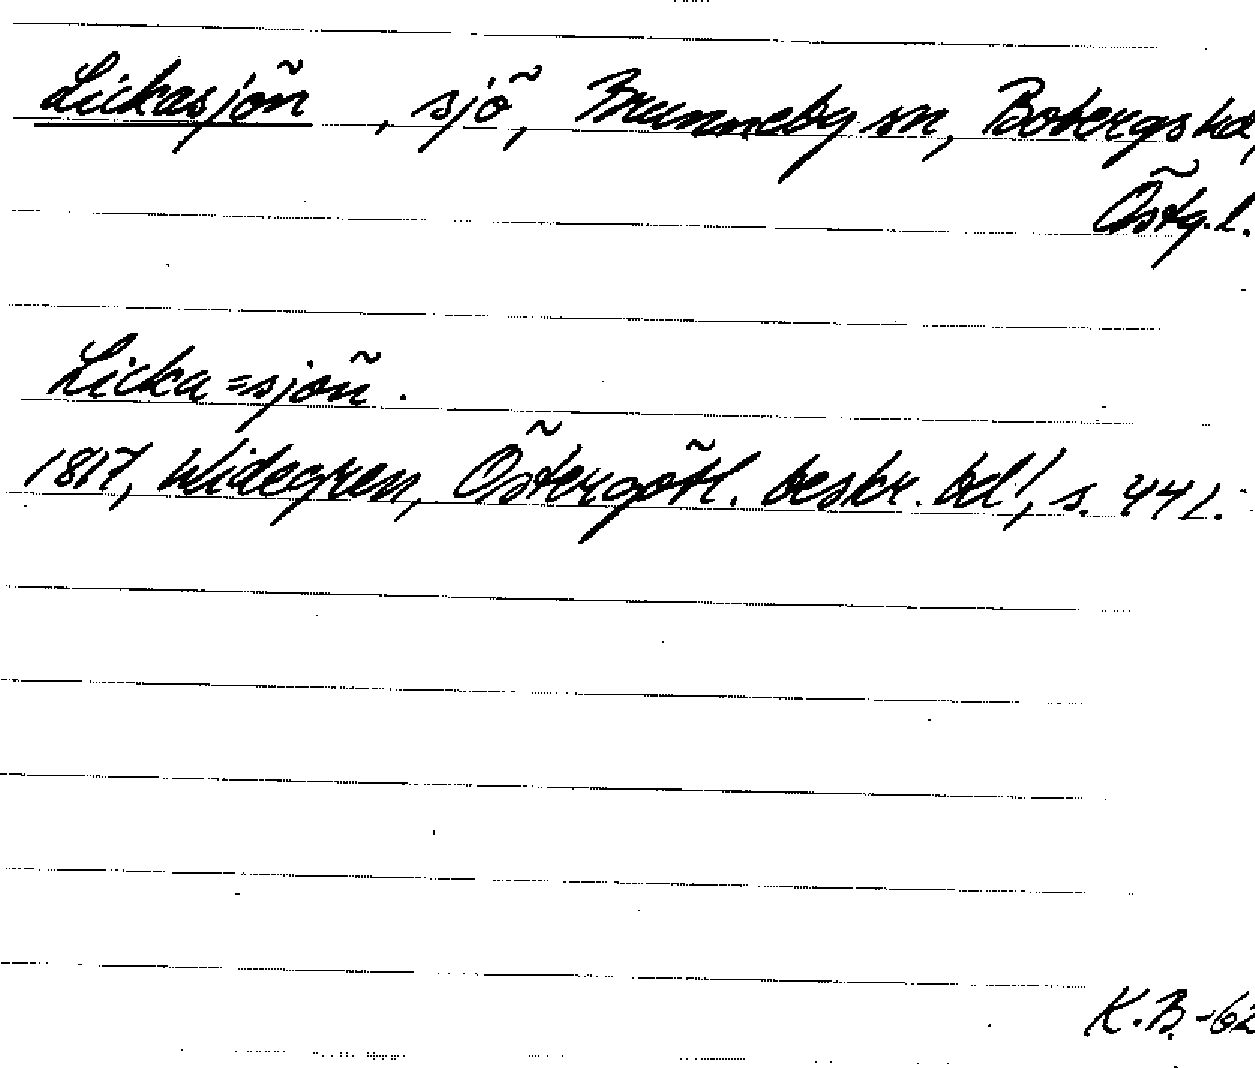 Lickasjön, sjö, Brunneby sn, Bobergs hd,
Östg.l.
Licka=sjön.
1817, Widegren, Östergötl. beskr. bd 1, s. 442.
K.B.-62